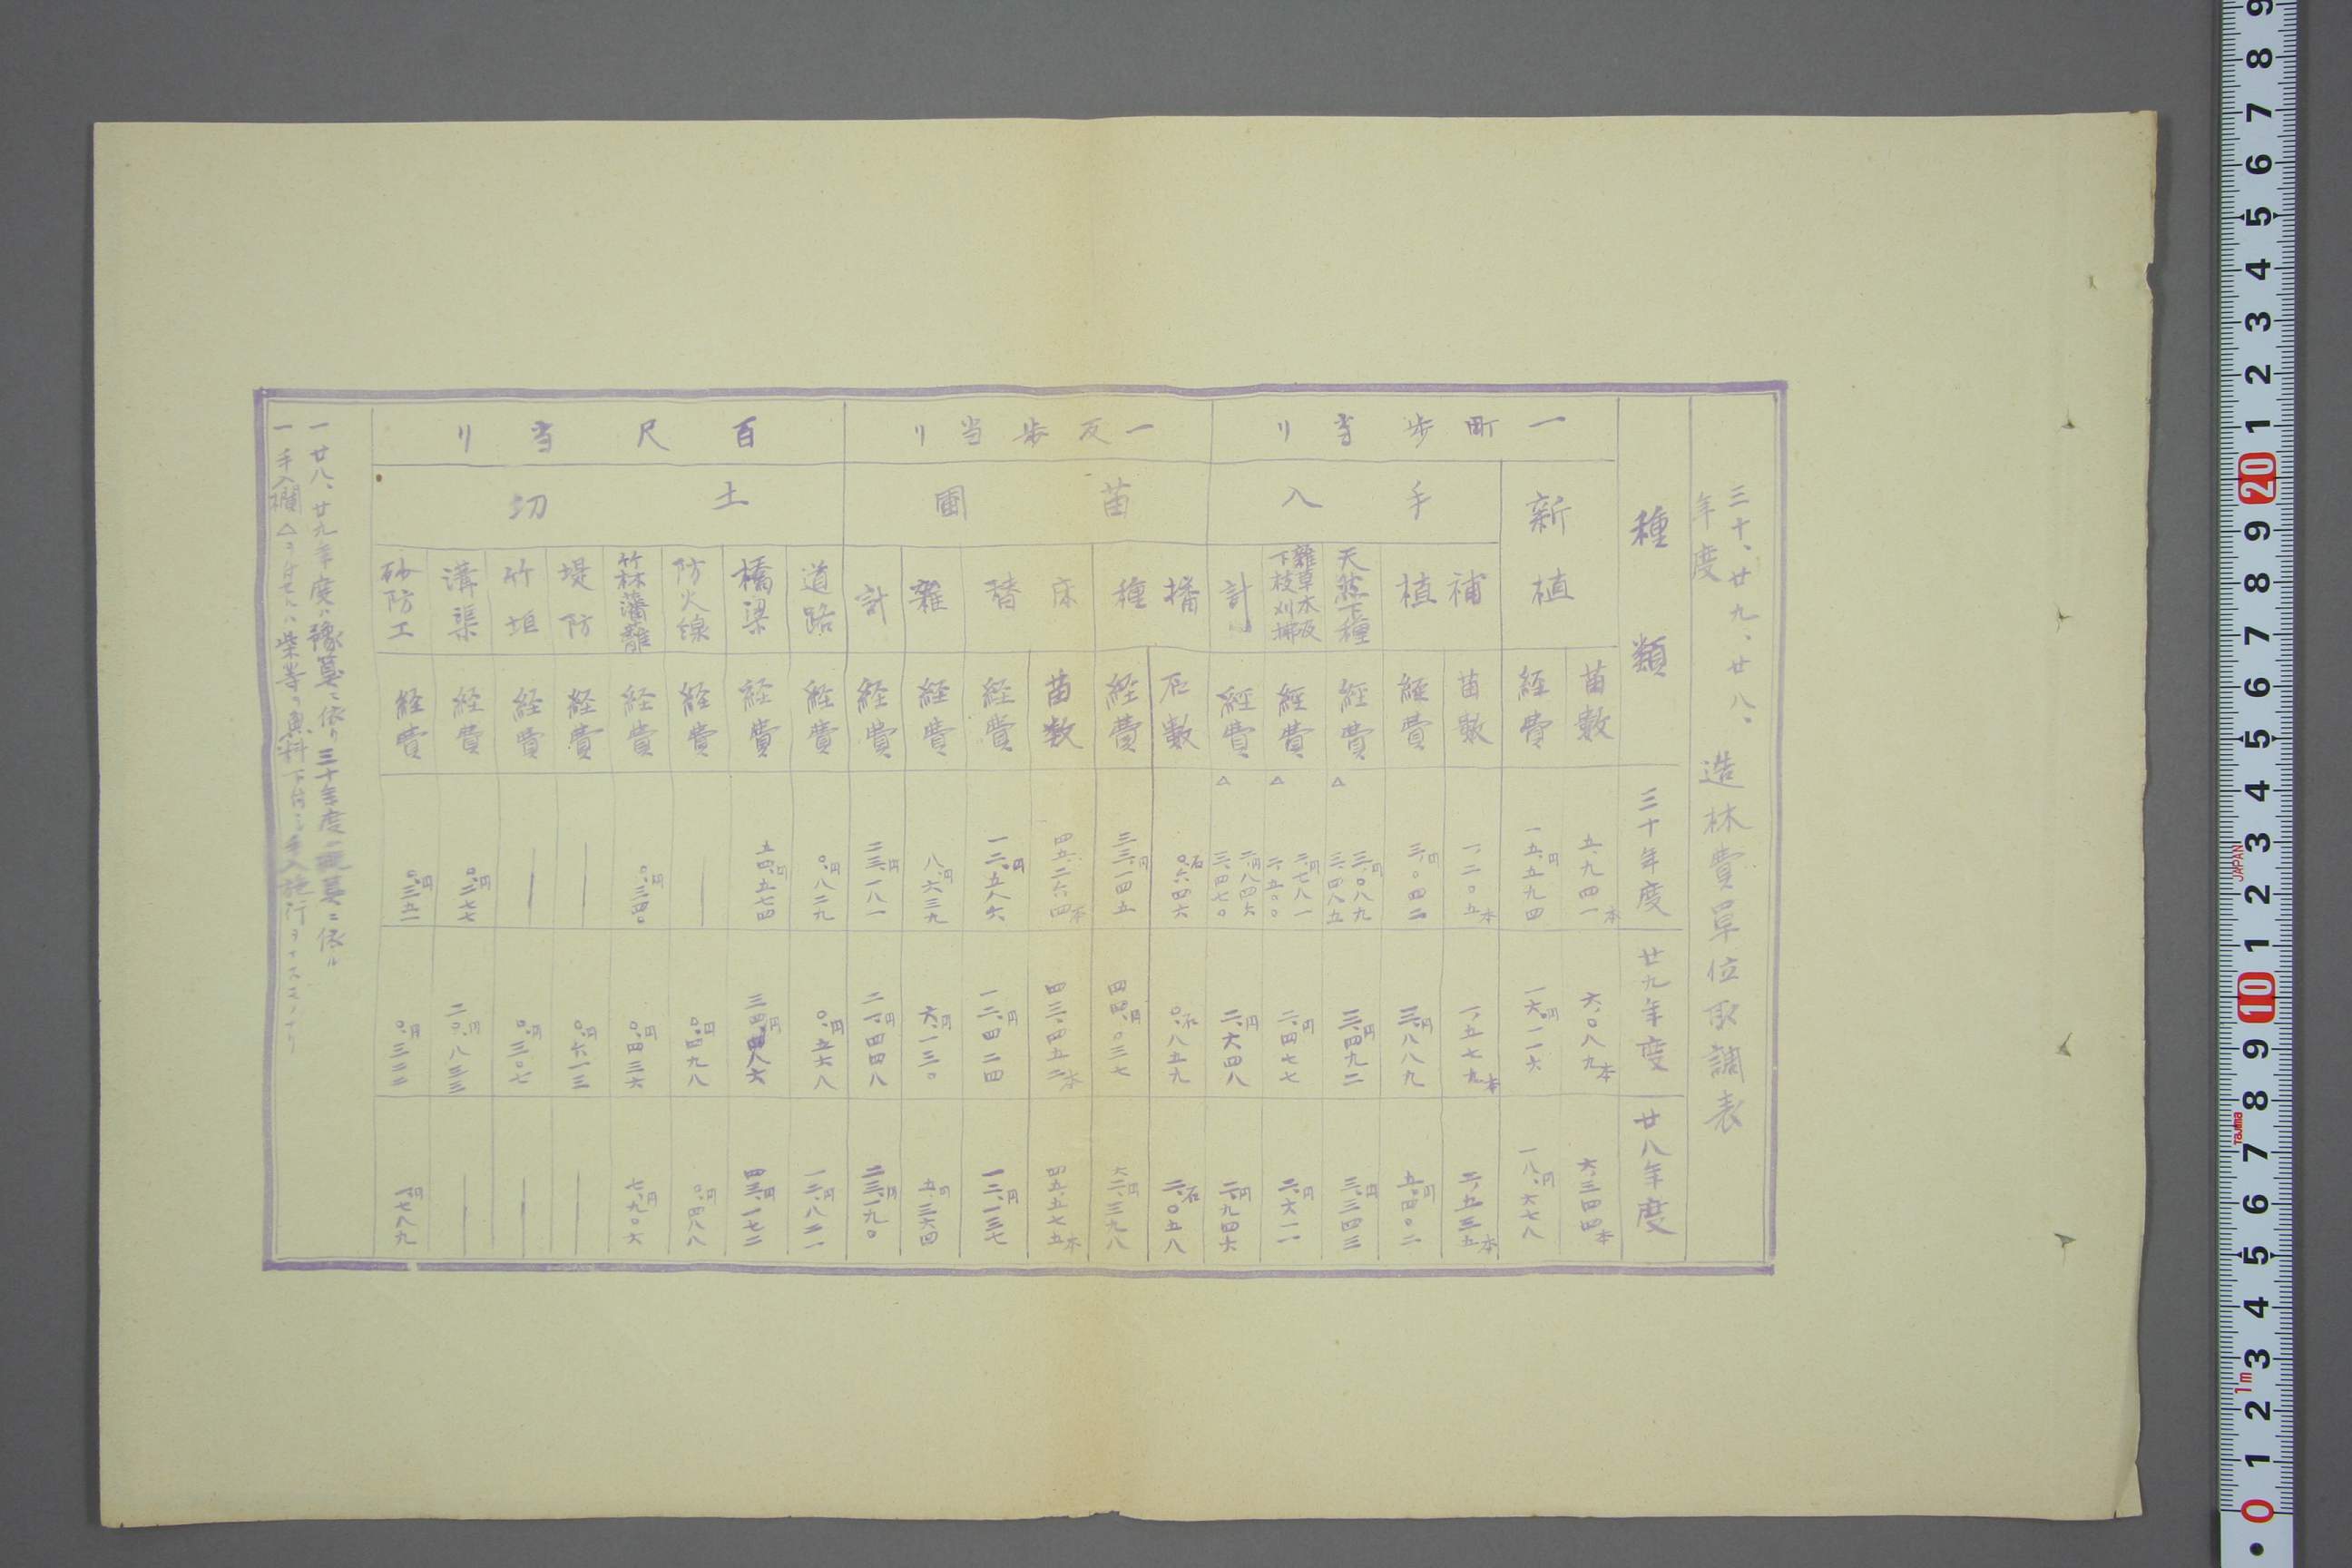 三十、廿九、廿八、年度 造林費単位取調表
種類 三十年度 廿九年度 廿八年度
一町歩当リ
新植
苗数 五、九四一本 六、〇八九本 六、三四四本
経費 一五、円五九四 一六、円一一六 一八、円六七八
手入
補植
苗数 一、二〇五本 一、五七九本 二、五三五本
経費 三、円〇四二 三、円八八九 五、円四〇二
天然下種
経費 △三、円〇八九 三、四八五 三、円四九二 三、円三四三
雑草木及下枝刈払
経費 △二、円七八一 二、五〇〇 二、円四七七 二、円六一一
計
経費 △二、円八四六 三、四七〇 二、円六四八 二、円九四六
一反歩当リ
苗圃
播種
石数 〇、石六四六 〇、石八五九 二、石〇五八
経費 三三、円一四五 四四、円〇三七 六二、円三九八
床替
苗数 四五、二六四本 四三、四五二本 四五、五七五本
経費 一二、円五八六 一二、円四二四 一三、円一三七
雑
経費 八、円六三九 六、円一三〇 五、円三六四
計
経費 二三、円一八一 二一、円四四八 二三、円一九〇
百尺当リ
土切
道路
経費 〇、円八二九 〇、円五六八 一三、円八二一
橋梁
経費 五四、円五七四 三四、円八六 四三、円一七二
防火線
経費 ― 〇、円四九八 〇、円四八八
竹林藩籬
経費 〇、円三四〇 〇、円四三六 七、円九〇六
堤防
経費 ― 〇、円六一三 ―
竹垣
経費 ― 〇、円三〇七 ―
溝渠
経費 〇、円二七七 二〇、円八三三 ―
砂防工
経費 〇、円三五一 〇、円三二二 一、円七八九
一 廿八、廿九年度ハ豫算ニ依リ三十年度ハ概算ニ依ル
一 手入欄△ヲ付セルハ柴草ヲ無料下付シ手入施行ヲナスモノナリ